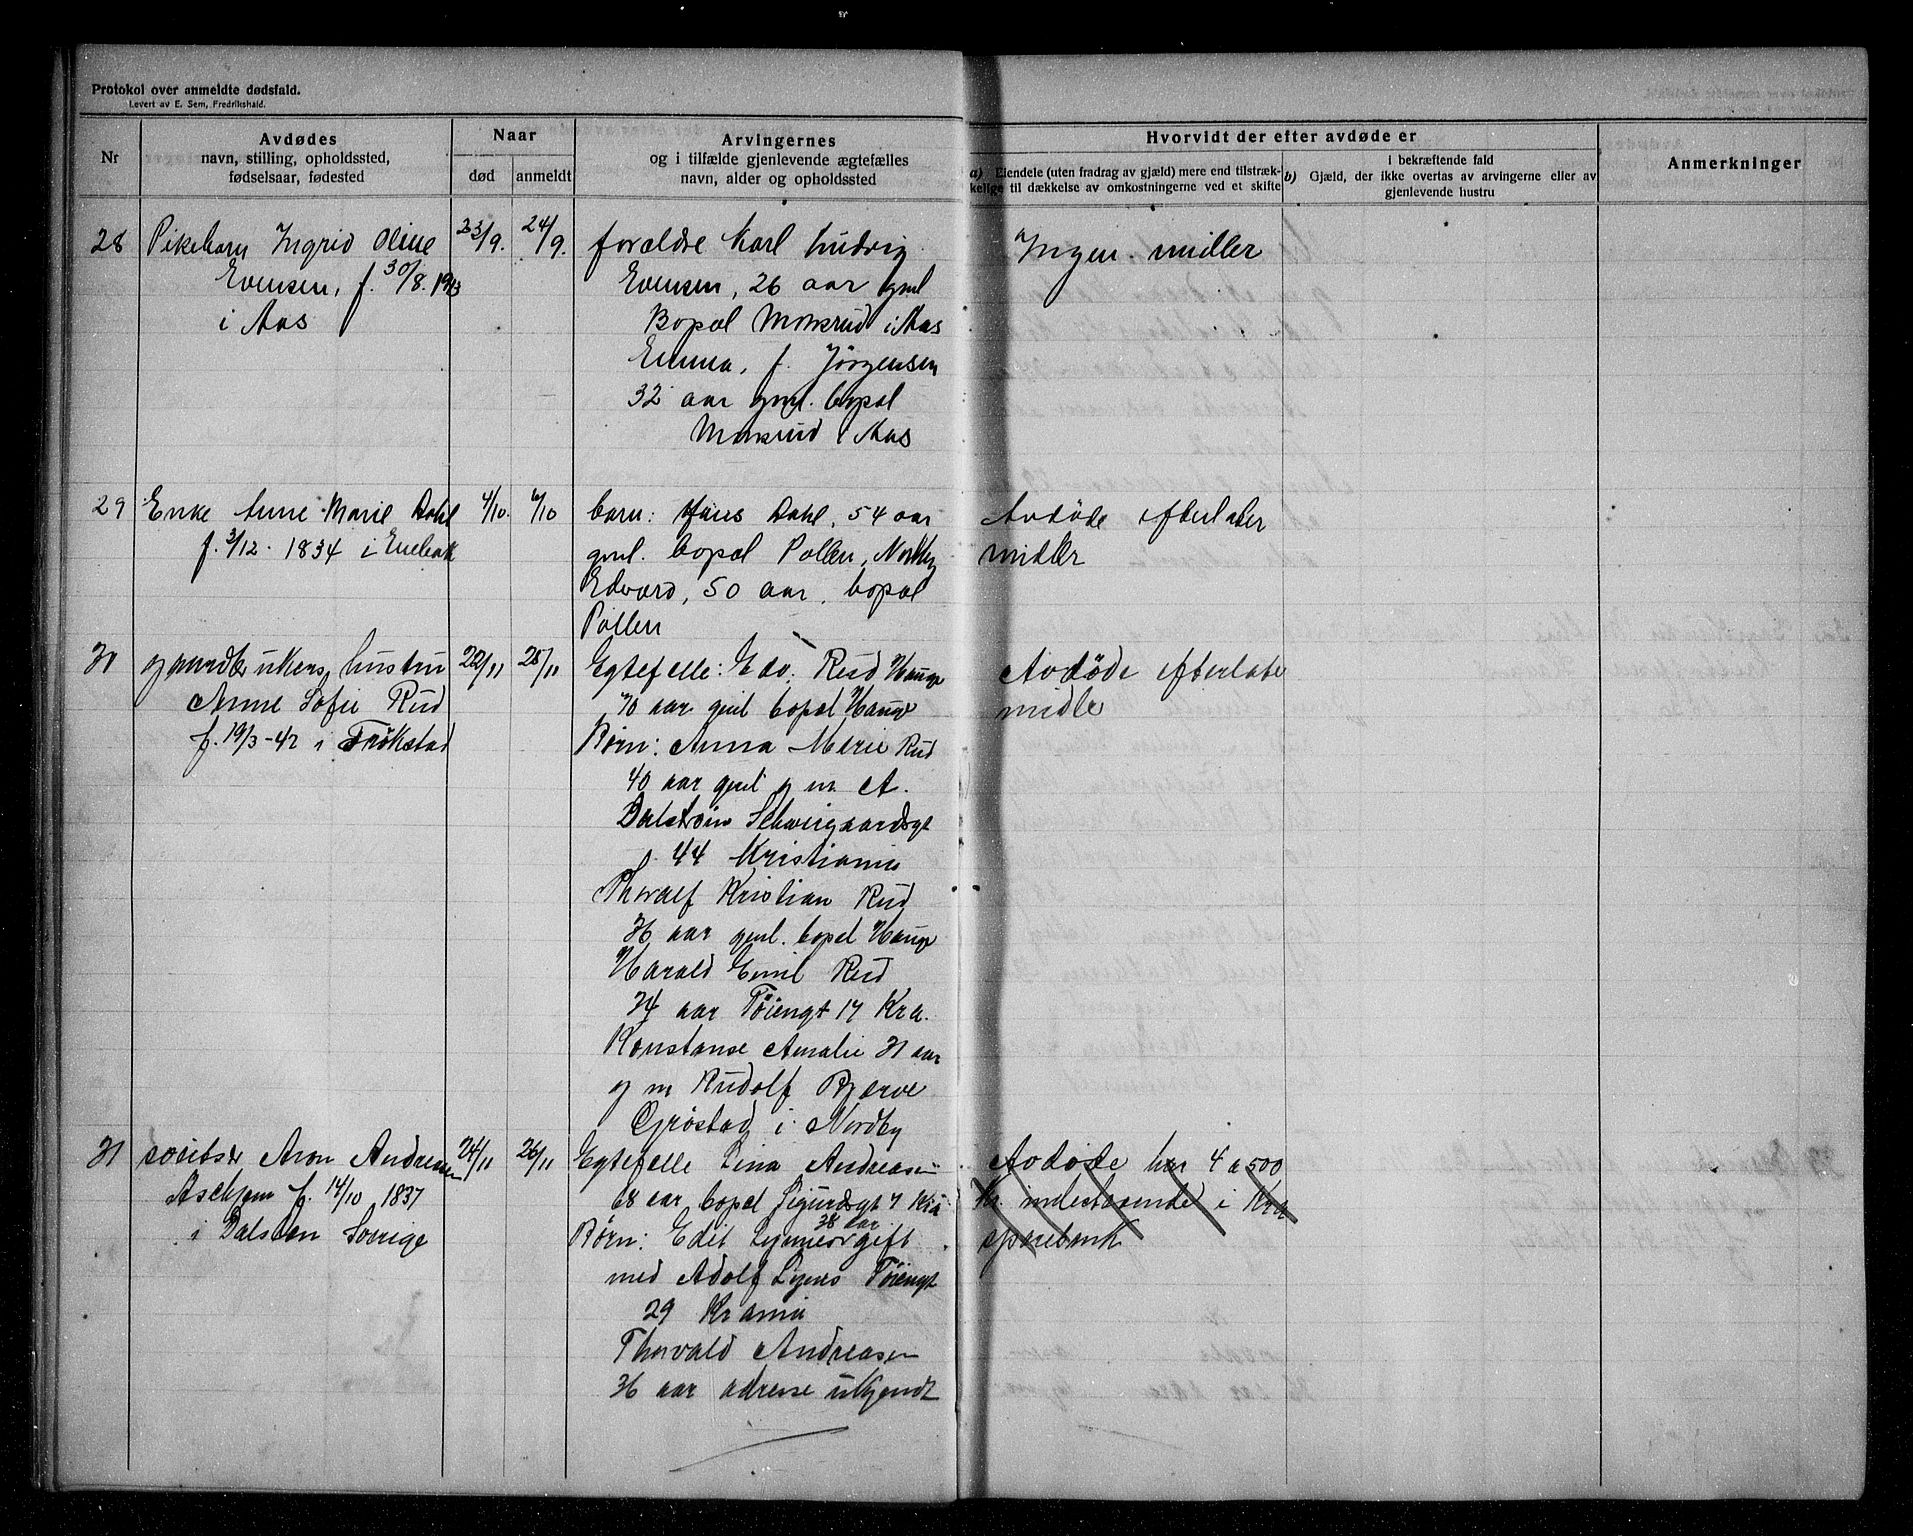 Protokol over anmeldte dødsfald.
Levert av E. Sem, Fredrikshald.
Nr
Avdødes
navn, stilling, opholdssted,
fødselsaar, fødested
Naar
død
anmeldt
Arvingernes
og i tilfælde gjenlevende ægtefælles
navn, alder og opholdssted
Hvorvidt der efter avdøde er
a) Eiendele (uten fradrag av gjæld) mere end tilstræk-
kelige til dækkelse av omkostningerne ved et skifte
i bekræftende fald
b) Gjæld, der ikke overtas av arvingerne eller av
gjenlevende hustru
Anmerkninger
28
Pikebarn Ingrid Oline
Evensen, f. 30/8. 1913
i Aas
23/9.
24/9.
forældre Karl Ludvig
Evensen, 26 aar gml
Bopæl Monsrud i Aas
Emma, f. Jørgensen
32 aar gml. bopæl
Monsrud i Aas
Ingen midler
29
Enke Anne Marie Dahl
f. 3/12. 1834 i Enebak
4/10.
6/10
barn: Hans Dahl, 54 aar
gml. bopæl Pollen, Nordby
Edvard, 50 aar, bopæl
Pollen
Avdøde efterlater
midler
30
gaardbrukers hustru
Anne Sofie Rud
f. 19/3-42 i Trøkstad
22/11
25/11
Egtefelle: Edv. Rud Hauge
70 aar gml bopel Hauge
Børn: Anna Marie Rud
40 aar gml g m A.
Dalstrøm Schweigaardsgt
44 Kristiania
Thoralf Kristian Rud
36 aar gml. bopel Hauge
Harald Emil Rud
34 aar Tøiengt 17 Kra.
Konstanse Amalie 31 aar
g m Rudolf Bjerve
Grøstad i Nordby
Avdøde efterlater
midle
31
Aron Andreasen
Askjem f. 14/10 1837
i Dalsten Sverige
24/11
26/11
Egtefelle Lina Andreasen
68 aar bopel Sigurdsgt 7 Kra
38 aar
Børn: Edit gift
med Adolf Tøiengt
29 Krania
Thorvald Andreasen
36 aar adresse ukjendt
Avdøde har 4 a 500
Kr. indestaaende i Kra
sparebank